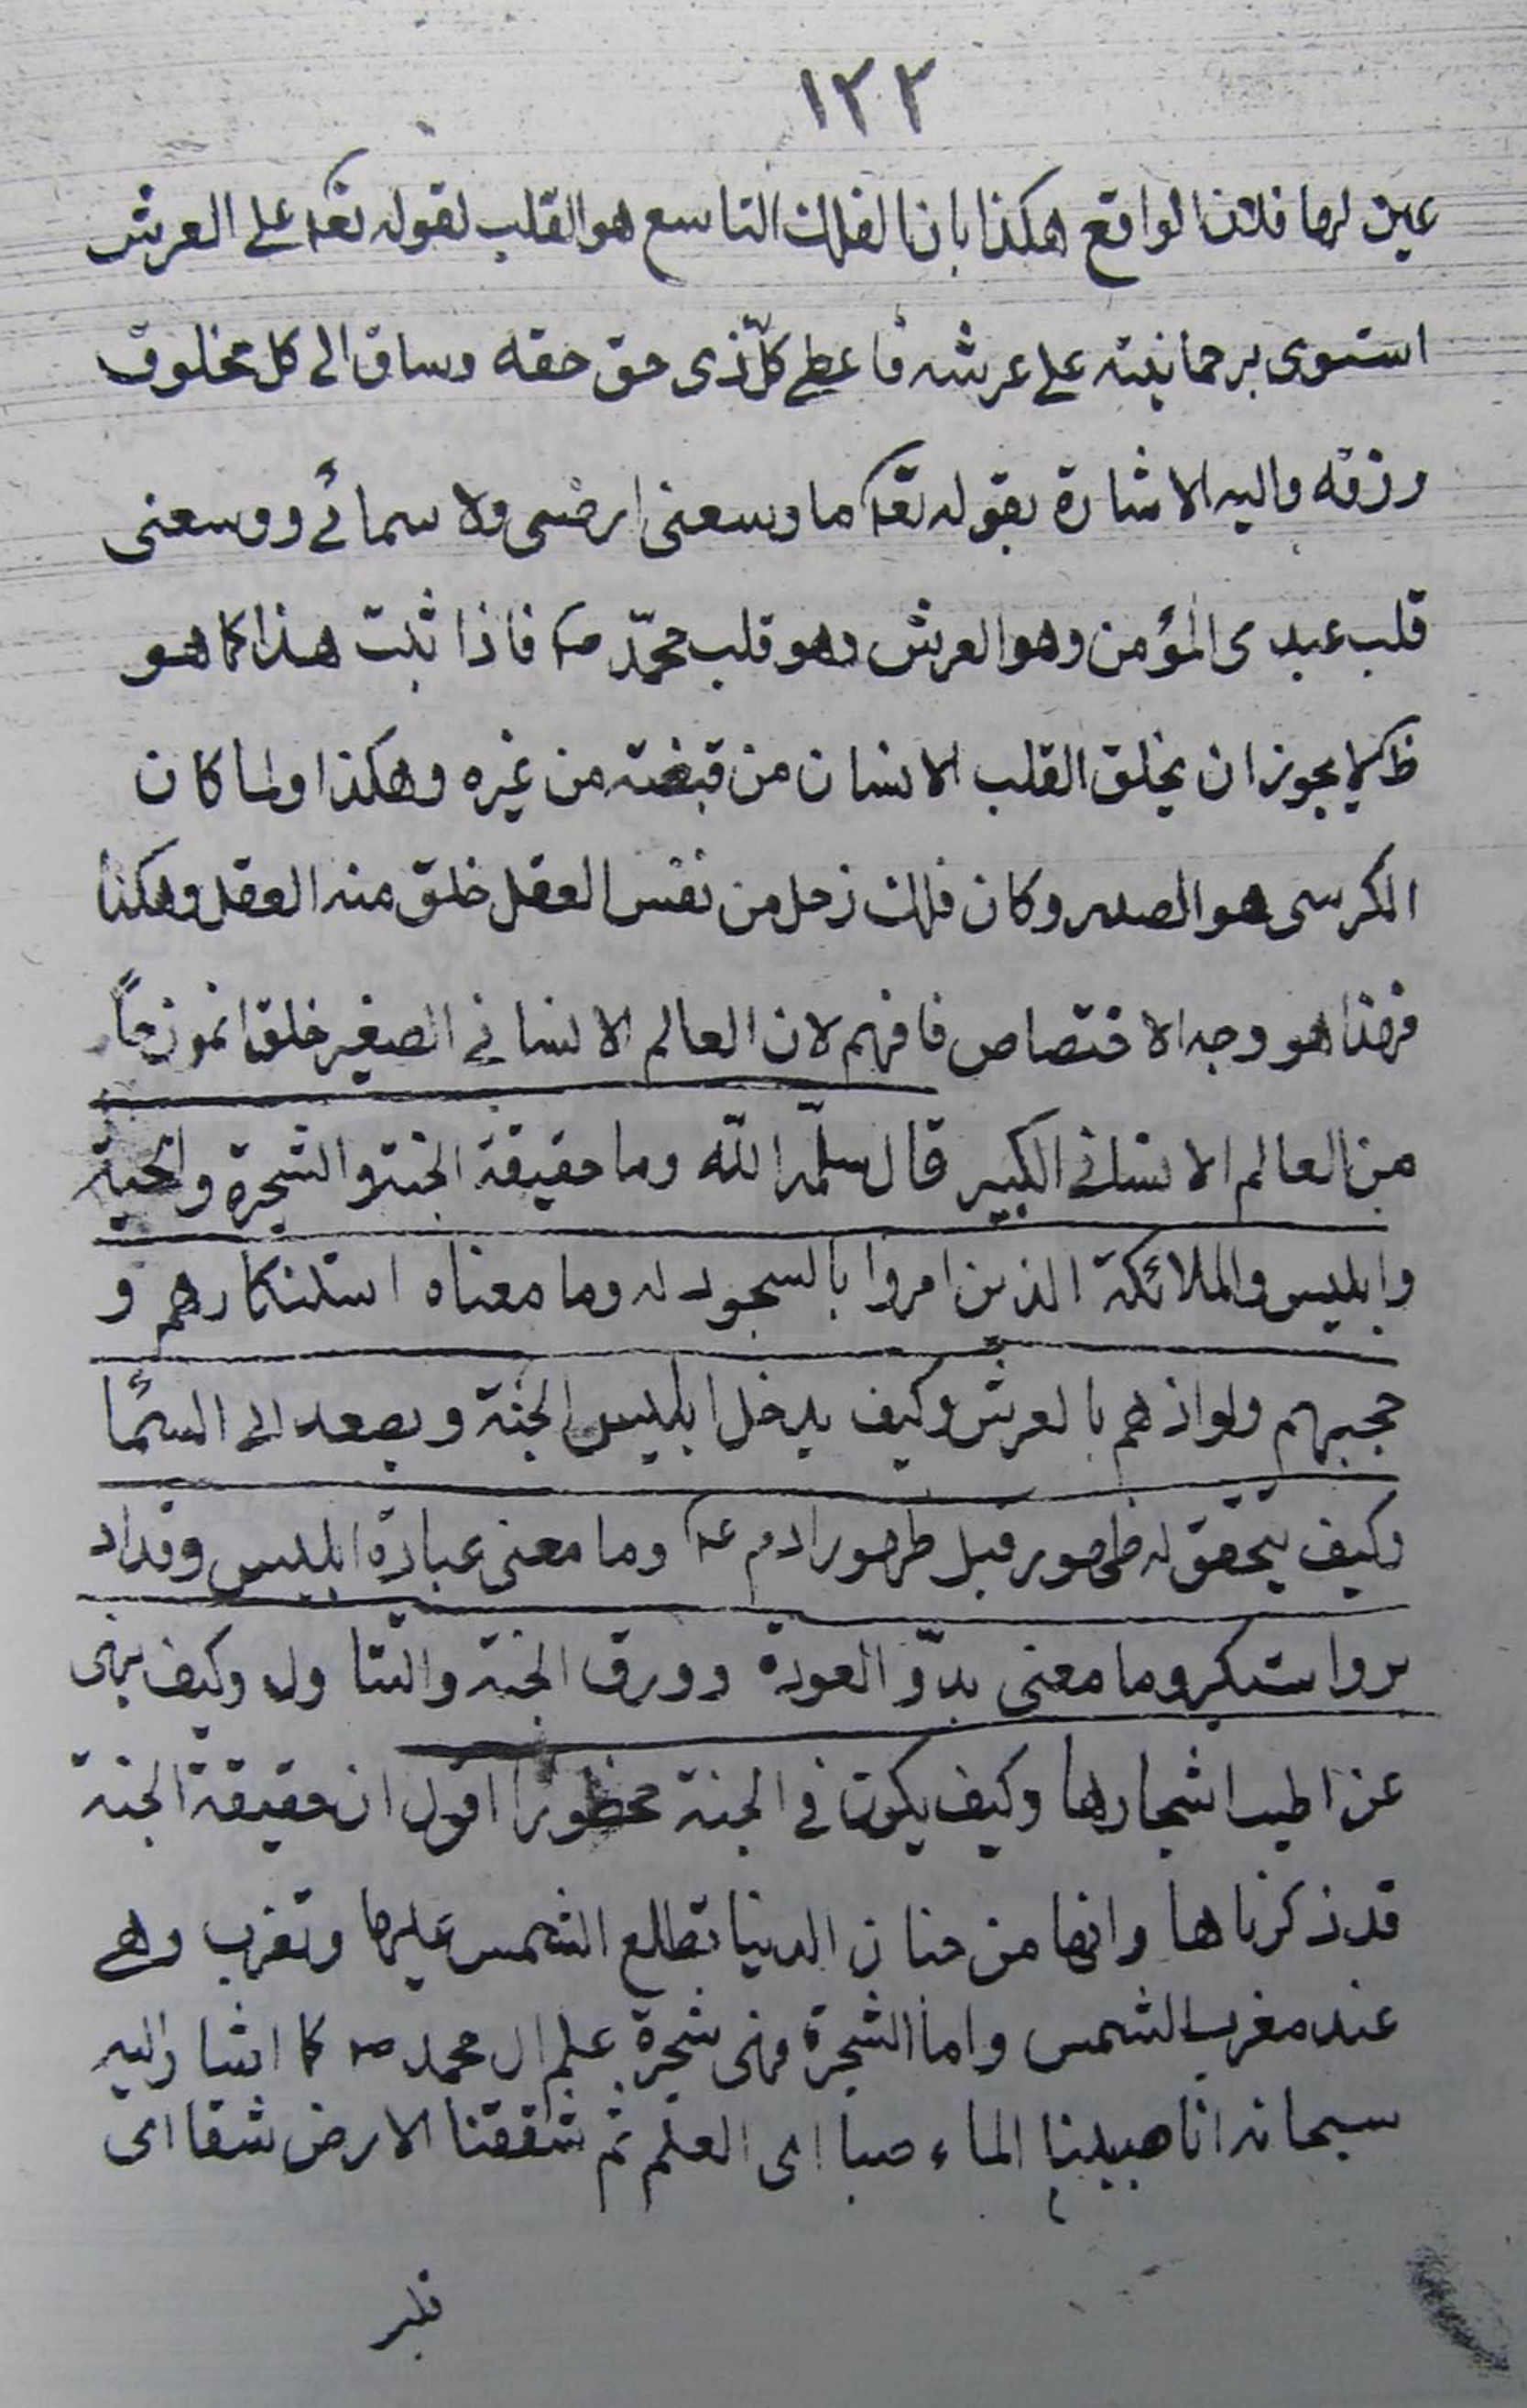 ١٢٢
عين لها فلان الواقع هكذا بان الفلك التاسع هو القلب لقوله تعه على العرش
استوى برحمانيته على عرشه فاعطى كلّ ذى حق حقه وساق الى كل مخلوق
رزقه واليه الاشارة بقوله تعه ما وسعنى ارضى ولا سمائى ووسعنى
قلب عبدى المؤمن وهو العرش وهو قلب محمّد صه فاذا ثبت هذا كما هو
ظ لا يجوز ان يخلق القلب الانسان من قبضته من غيره وهكذا ولما كان
الكرسى هو الصدر وكان فلك زحل من نفس العقل خلق منه العقل وهكذا
فهذا هو وجه الاختصاص فافهم لان العالم الانسانى الصغير خلق انموزجاً
من العالم الانسانى الكبير قال سلّمه الله وما حقيقة الجنة والشجرة والحية
وابليس والملائكة الذين امروا بالسجود له وما معناه استنكارهم و
حجبهم ولواذهم بالعرش وكيف يدخل ابليس الجنة ويصعد الى السمآء
وكيف يتحقق له ظهور قبل ظهور ادم عه وما معنى عبادة ابليس وقد اد
بر واستكبر وما معنى بدوّ العورة وورق الجنة والتناول وكيف ينهى
عن اطيب اشجارها وكيف يكون فى الجنة محظورا اقول ان حقيقة الجنة
قد ذكرناها وانها من جنان الدنيا تطلع الشمس عليها وتغرب وهى
عند مغرب الشمس واما الشجرة فهى شجرة علم ال محمد صه كما اشار اليه
سبحانه انا صببنا الماء صبا اى العلم ثم شققنا الارض شقا اى